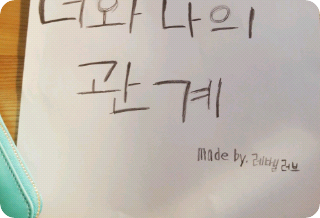 너와 나의
관계
made by. 레벨러브